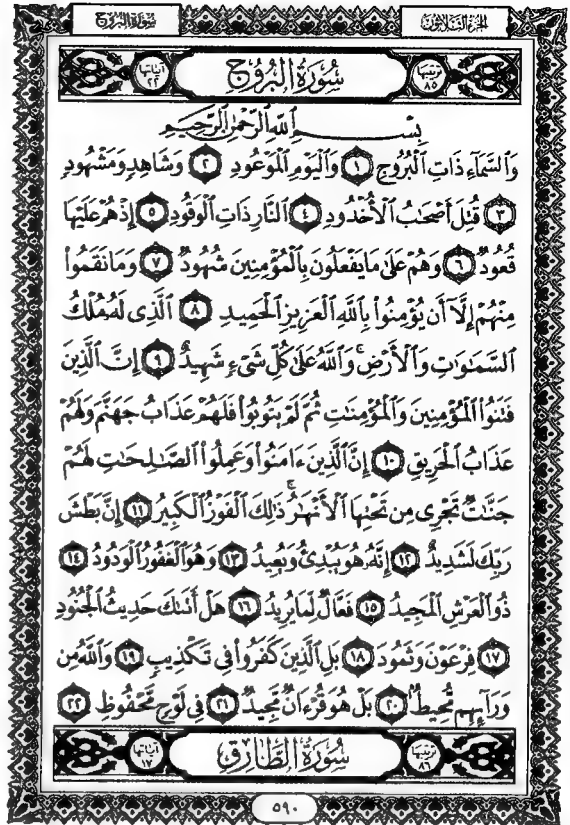 سُورَةُ البُرُوجِ الجُزْءُ الثَّلَاثُونَ
تَرْتِيبُهَا ٨٥ سُورَةُ البُرُوجِ آيَاتُهَا ٢٢
بِسْمِ ٱللَّهِ ٱلرَّحْمَٰنِ ٱلرَّحِيمِ
وَٱلسَّمَآءِ ذَاتِ ٱلْبُرُوجِ ١ وَٱلْيَوْمِ ٱلْمَوْعُودِ ٢ وَشَاهِدٍ وَمَشْهُودٍ
٣ قُتِلَ أَصْحَٰبُ ٱلْأُخْدُودِ ٤ ٱلنَّارِ ذَاتِ ٱلْوَقُودِ ٥ إِذْ هُمْ عَلَيْهَا
قُعُودٌ ٦ وَهُمْ عَلَىٰ مَا يَفْعَلُونَ بِٱلْمُؤْمِنِينَ شُهُودٌ ٧ وَمَا نَقَمُوا۟
مِنْهُمْ إِلَّآ أَن يُؤْمِنُوا۟ بِٱللَّهِ ٱلْعَزِيزِ ٱلْحَمِيدِ ٨ ٱلَّذِى لَهُۥ مُلْكُ
ٱلسَّمَٰوَٰتِ وَٱلْأَرْضِ ۚ وَٱللَّهُ عَلَىٰ كُلِّ شَىْءٍ شَهِيدٌ ٩ إِنَّ ٱلَّذِينَ
فَتَنُوا۟ ٱلْمُؤْمِنِينَ وَٱلْمُؤْمِنَٰتِ ثُمَّ لَمْ يَتُوبُوا۟ فَلَهُمْ عَذَابُ جَهَنَّمَ وَلَهُمْ
عَذَابُ ٱلْحَرِيقِ ١٠ إِنَّ ٱلَّذِينَ ءَامَنُوا۟ وَعَمِلُوا۟ ٱلصَّٰلِحَٰتِ لَهُمْ
جَنَّٰتٌ تَجْرِى مِن تَحْتِهَا ٱلْأَنْهَٰرُ ۚ ذَٰلِكَ ٱلْفَوْزُ ٱلْكَبِيرُ ١١ إِنَّ بَطْشَ
رَبِّكَ لَشَدِيدٌ ١٢ إِنَّهُۥ هُوَ يُبْدِئُ وَيُعِيدُ ١٣ وَهُوَ ٱلْغَفُورُ ٱلْوَدُودُ ١٤
ذُو ٱلْعَرْشِ ٱلْمَجِيدُ ١٥ فَعَّالٌ لِّمَا يُرِيدُ ١٦ هَلْ أَتَىٰكَ حَدِيثُ ٱلْجُنُودِ
١٧ فِرْعَوْنَ وَثَمُودَ ١٨ بَلِ ٱلَّذِينَ كَفَرُوا۟ فِى تَكْذِيبٍ ١٩ وَٱللَّهُ مِن
وَرَآئِهِم مُّحِيطٌۢ ٢٠ بَلْ هُوَ قُرْءَانٌ مَّجِيدٌ ٢١ فِى لَوْحٍ مَّحْفُوظٍۭ ٢٢
تَرْتِيبُهَا ٨٦ سُورَةُ الطَّارِقِ آيَاتُهَا ١٧
٥٩٠